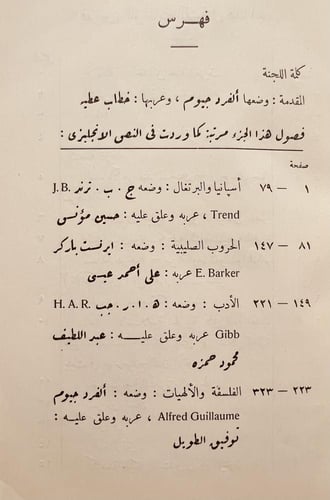 فهرس
كلمة اللجنة
المقدمة : وضعها ألفرد جيوم ، وعربها : خطاب عطيه
فصول هذا الجزء مرتبة كما وردت فى النص الانجليزى :
صفحة
١ — ٧٩ أسپانيا والبرتغال : وضعه ج . ب . ترند J.B.
Trend ، عربه وعلق عليه : حسين مؤنس
٨١ — ١٤٧ الحروب الصليبية : وضعه : ايرنست باركر
E. Barker عربه : على أحمد عيسى
١٤٩ — ٢٢١ الأدب : وضعه : ه . ا . ر . جب H. A. R.
Gibb عربه وعلق عليــه : عبد اللطيف
محمود حمزه
٢٢٣ — ٣٢٣ الفلسفة والألهيات : وضعه : ألفرد جيوم
Alfred Guillaume ، عربه وعلق عليه :
توفيق الطويل